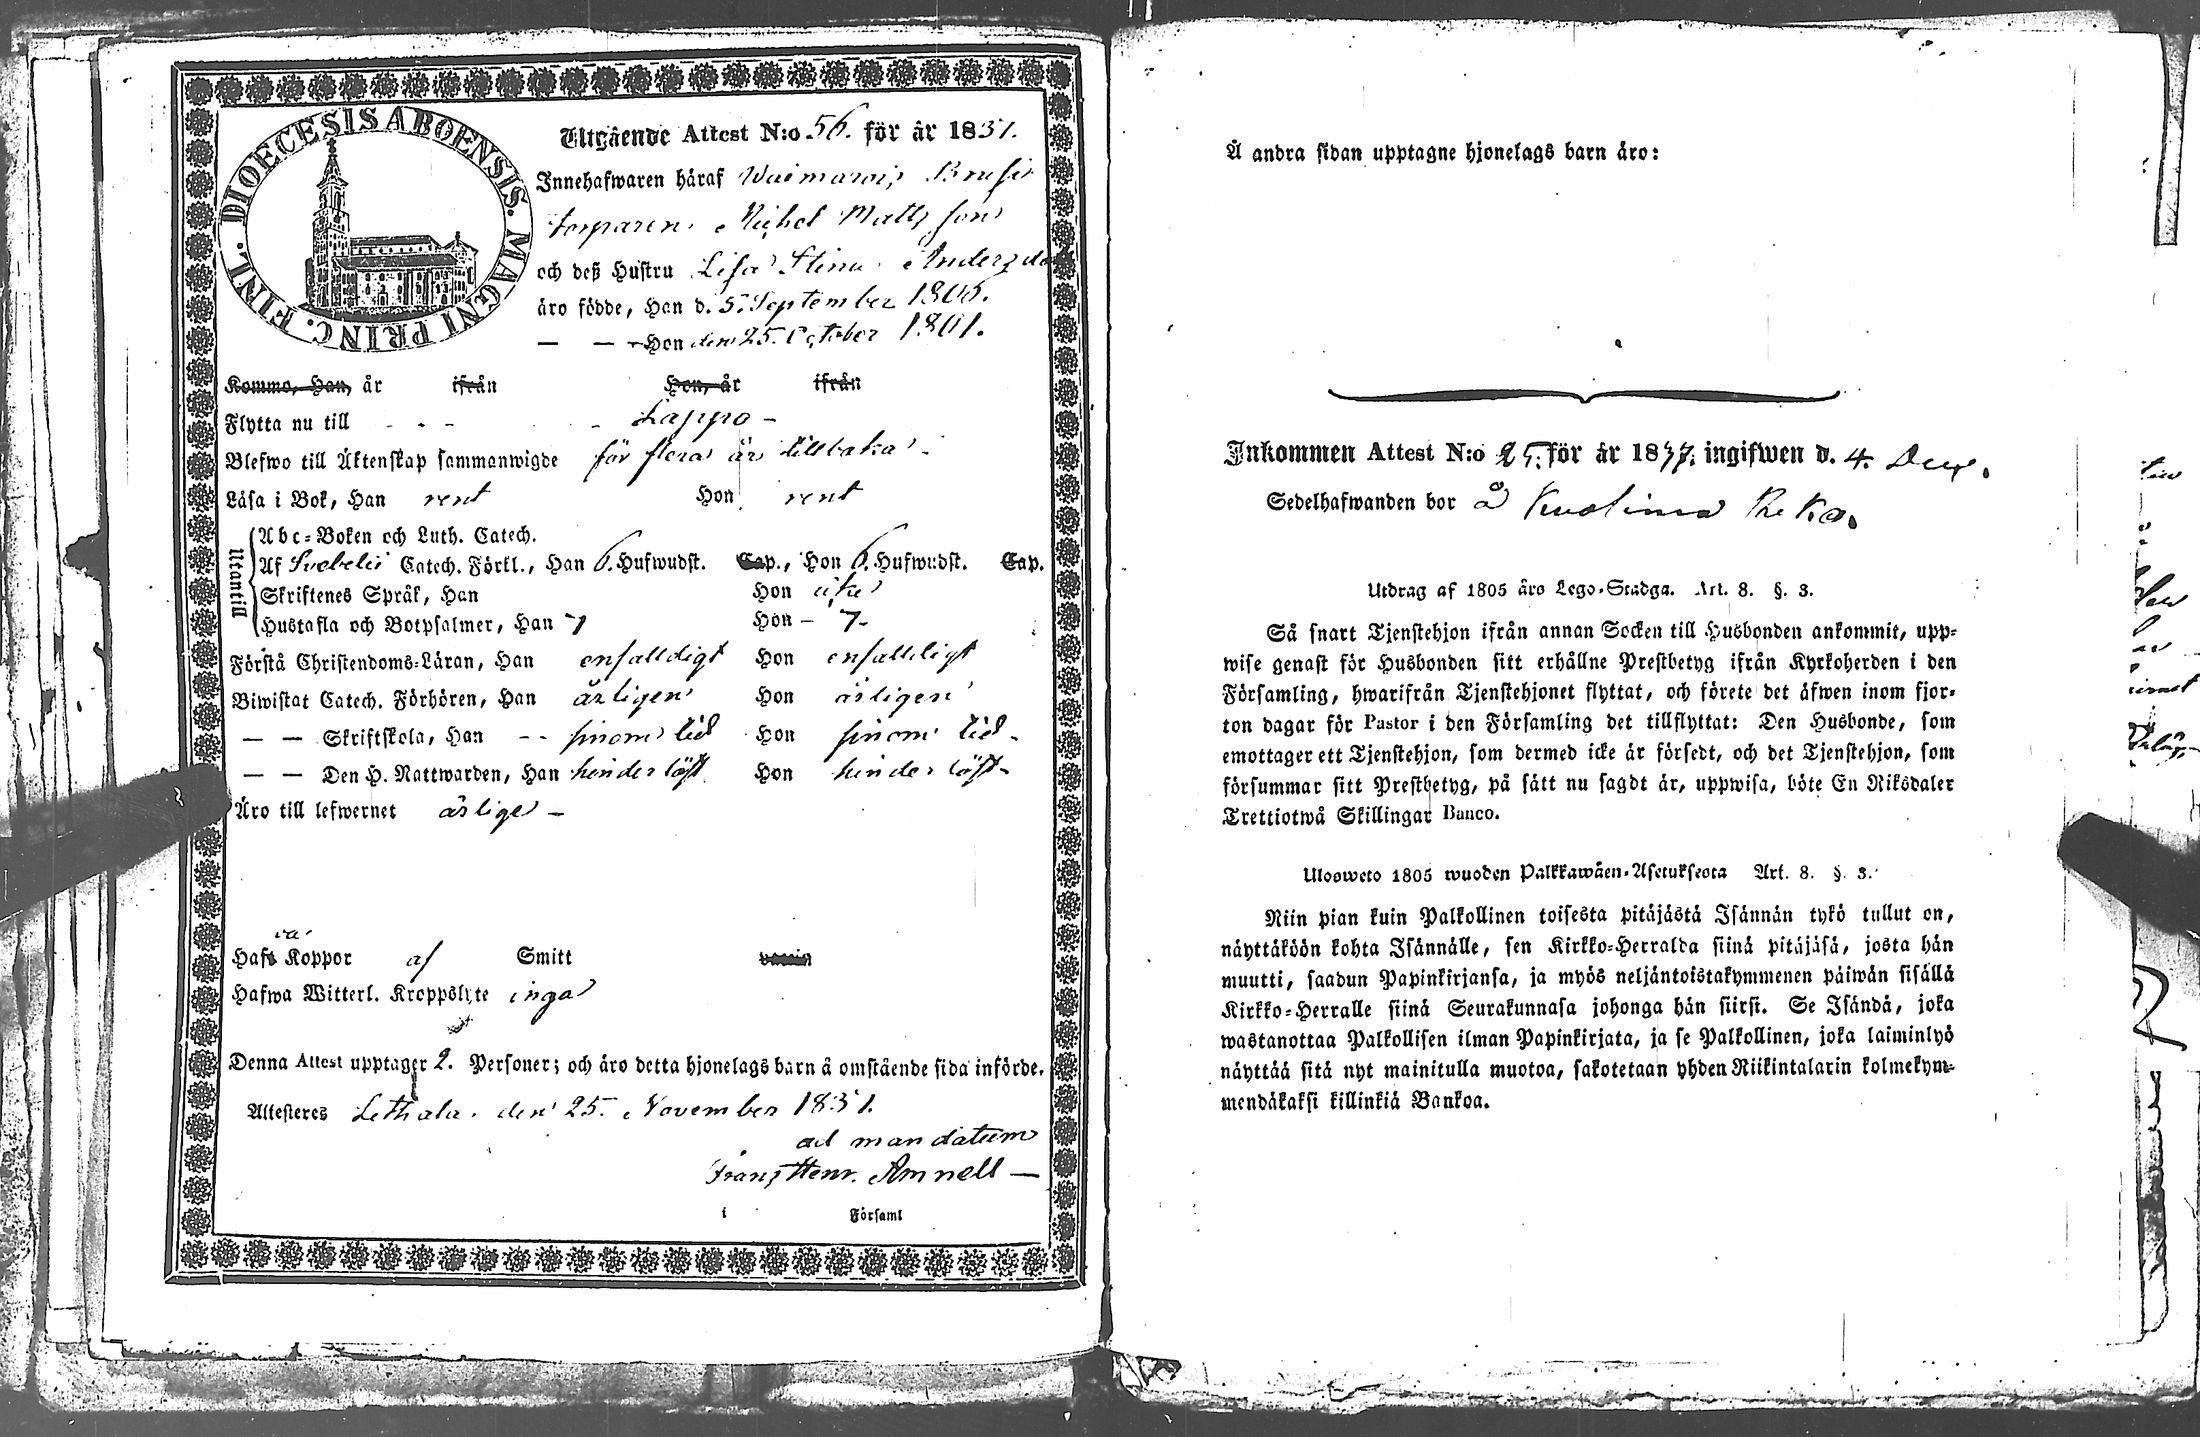 DIOECESIS ABOENSIS. MAGNI PRINC. FINL.
Utgående Attest N:o 56. för år 1837.
Innehafwaren häraf Waimarois
torparen Michel Mattsson
och deß Hustru Lisa Stina Andersdotr
äro födde, Han d. 5. September 1805.
— — Hon den 25. October 1801.
Komme, Han, år ifrån Hon, år ifrån
Flytta nu till - - - - Lappo -
Blefwo till Äktenskap sammanwigde för flera år tillbaka -
Läsa i Bok, Han rent Hon rent
Utantill
Abc-Boken och Luth. Catech.
Af Svebelii Catech. Förkl., Han 6. Hufwudst. Cap., Hon 6. Hufwudst. Cap.
Skriftenes Språk, Han Hon icke
Hustafla och Botpsalmer, Han 7 Hon - 7-
Förstå Christendoms-Läran, Han enfalldigt Hon enfalldigt
Biwistat Catech. Förhören, Han årligen Hon årligen
— — Skriftskola, Han - - sinom tid Hon sinom tid -
— — Den H. Nattwarden, Han hinderlöst Hon hinderlöst -
Äro till lefwernet ärlige -
Haft Koppor af Smitt vaccin
Hafwa Witterl. Kroppslyte inga
Denna Attest upptager 2. Personer; och äro detta hjonelags barn å omstående sida införde.
Attesteres Lethala den 25. November 1837.
ad mandatum
Frans Henr. Amnell —
i Församl
Å andra sidan upptagne hjonelags barn äro:
Inkommen Attest N:o 25. för år 1837. ingifwen d. 4. Dec.
Sedelhafwanden bor å
Utdrag af 1805 års Lego-Stadga. Art. 8. §. 3.
Så snart Tjenstehjon ifrån annan Socken till Husbonden ankommit, upp-
wise genast för Husbonden sitt erhållne Prestbetyg ifrån Kyrkoherden i den
Församling, hwarifrån Tjenstehjonet flyttat, och förete det äfwen inom fjor-
ton dagar för Pastor i den Församling det tillflyttat: Den Husbonde, som
emottager ett Tjenstehjon, som dermed icke är försedt, och det Tjenstehjon, som
försummar sitt Prestbetyg, på sätt nu sagdt är, uppwisa, böte En Riksdaler
Trettiotwå Skillingar Banco.
Uloswetо 1805 wuoden Palkkawäen-Asetuksesta Art. 8. §. 3.
Niin pian kuin Palkollinen toisesta pitäjästä Isännän tykö tullut on,
näyttäköön kohta Isännälle, sen Kirkko-Herralda siinä pitäjäsä, josta hän
muutti, saadun Papinkirjansa, ja myös neljäntoistakymmenen päiwän sisällä
Kirkko-Herralle siinä Seurakunnasa johonga hän siirsi. Se Isändä, joka
wastanottaa Palkollisen ilman Papinkirjata, ja se Palkollinen, joka laiminlyö
näyttää sitä nyt mainitulla muotoa, sakotetaan yhden Riikintalarin kolmekym-
mendäkaksi killinkiä Bankoa.